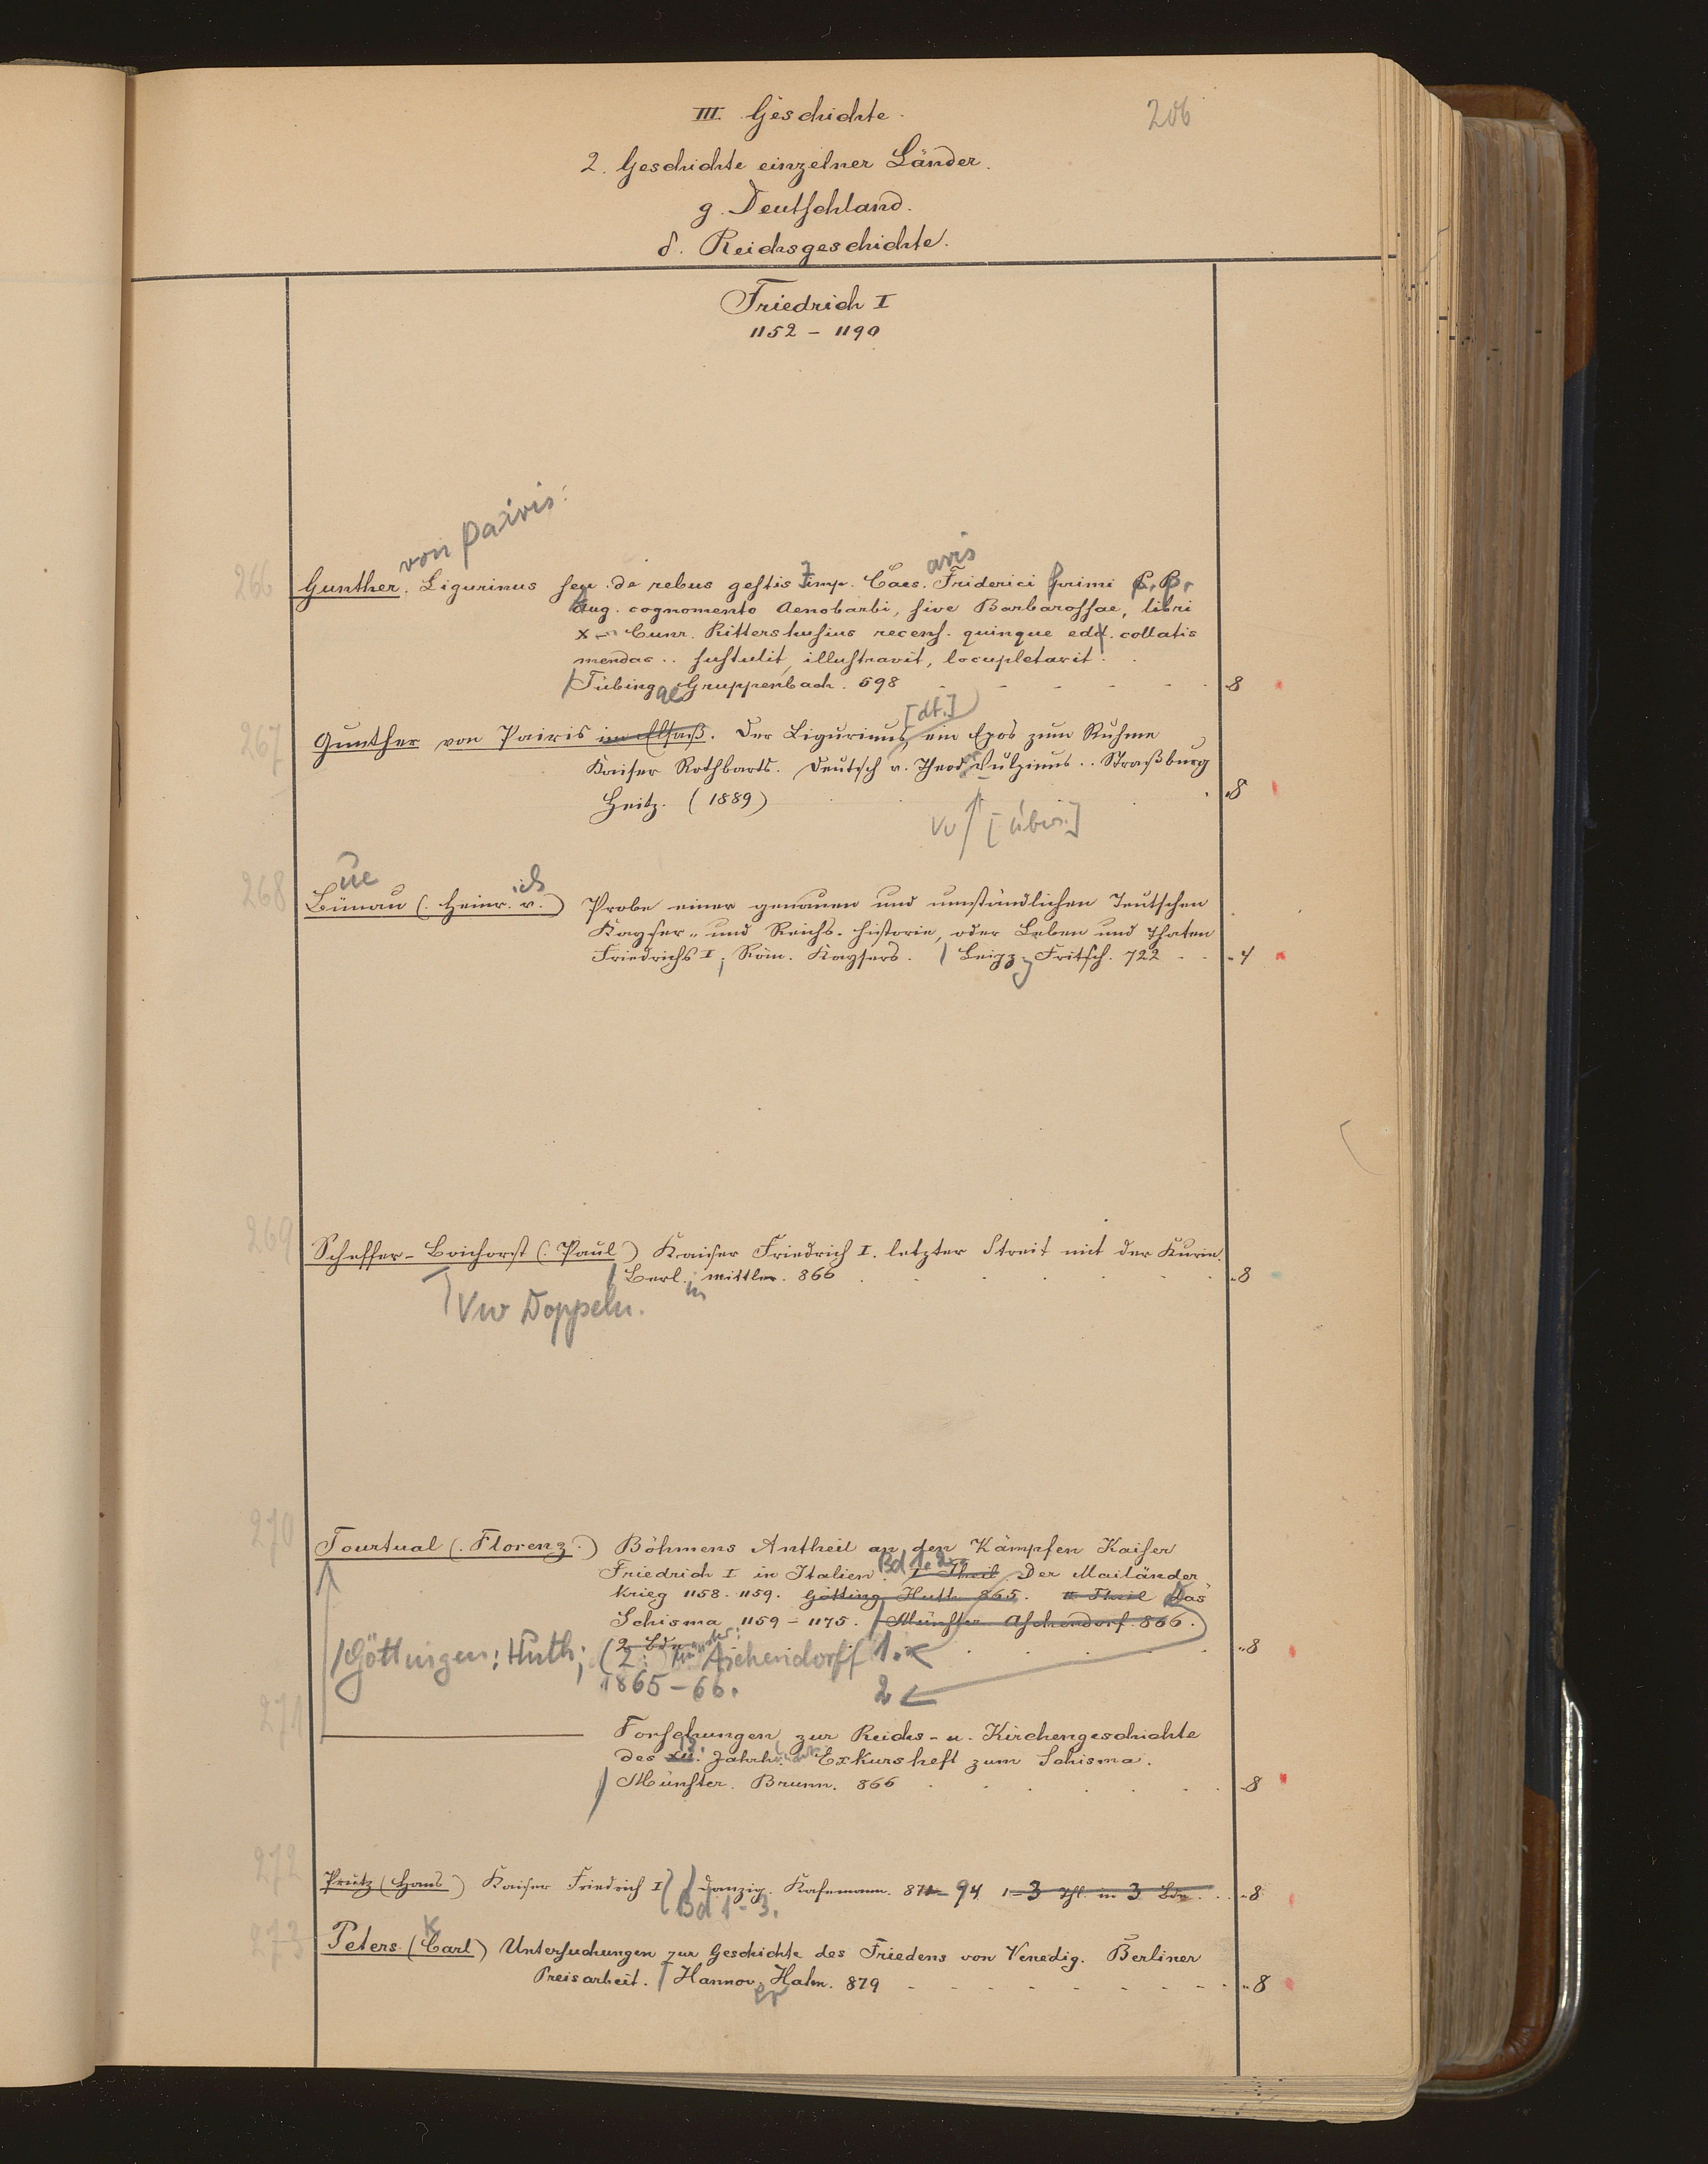 III. Geschichte.
206
2. Geschichte einzelner Länder.
g. Deutschland.
δ. Reichsgeschichte.
Friedrich I
1152 - 1190
von Pairis:
aris
266 Gunther. Ligurinus seu de rebus gestis Imp. Caes. Friderici primi P. P.
Aug. cognomento Aenobarbi, sive Barbarossae, libri
X Cunr. Rittershusius recens. quinque edd. collatis
mendas .. sustulit, illustravit, locupletavit.
Tübingae Gruppenbach. 598 8
[dt.]
267 Gunther von Pairis im Elsaß. Der Ligurinus, ein Epos zum Ruhme
Kaiser Rothbarts. Deutsch v. Theod. Vulpinus .. Straßburg
Heitz. (1889) 8
Vw [übers.]
ue ich
268 Bünau (Heinr. v.) Probe einer genauen und umständlichen Teutschen
Kayser- und Reichs-Historie, oder Leben und Thaten
Friedrichs I, Röm. Kaysers. Leipz. Fritsch. 722 4
269 Scheffer-Boichorst (Paul) Kaiser Friedrich I. letzter Streit mit der Kurie.
Berl. in Mittler. 866 8
Vw Doppeln.
270 Tourtual (Florenz) Böhmens Antheil an den Kämpfen Kaiser
Friedrich I in Italien. Bd 1. 2. I Theil Der Mailänder
Krieg 1158-1159. Götting. Huth 865. II Theil Das
Schisma 1159-1175. Münster Aschendorf. 866.
2 Bde
Göttingen: Huth; (2: Münster: Aschendorff 1. 8
1865-66. 2
271 Forschungen zur Reichs- u. Kirchengeschichte
des XII. Jahrh. Exkursheft zum Schisma.
Münster. Brunn. 866 8
272 Prutz (Hans) Kaiser Friedrich I Danzig. Kafemann. 871-94 1-3 Thl. in 3 Bdn. 8
Bd 1-3.
K
273 Peters (Carl) Untersuchungen zur Geschichte des Friedens von Venedig. Berliner
Preisarbeit. Hannover Hahn. 879 8